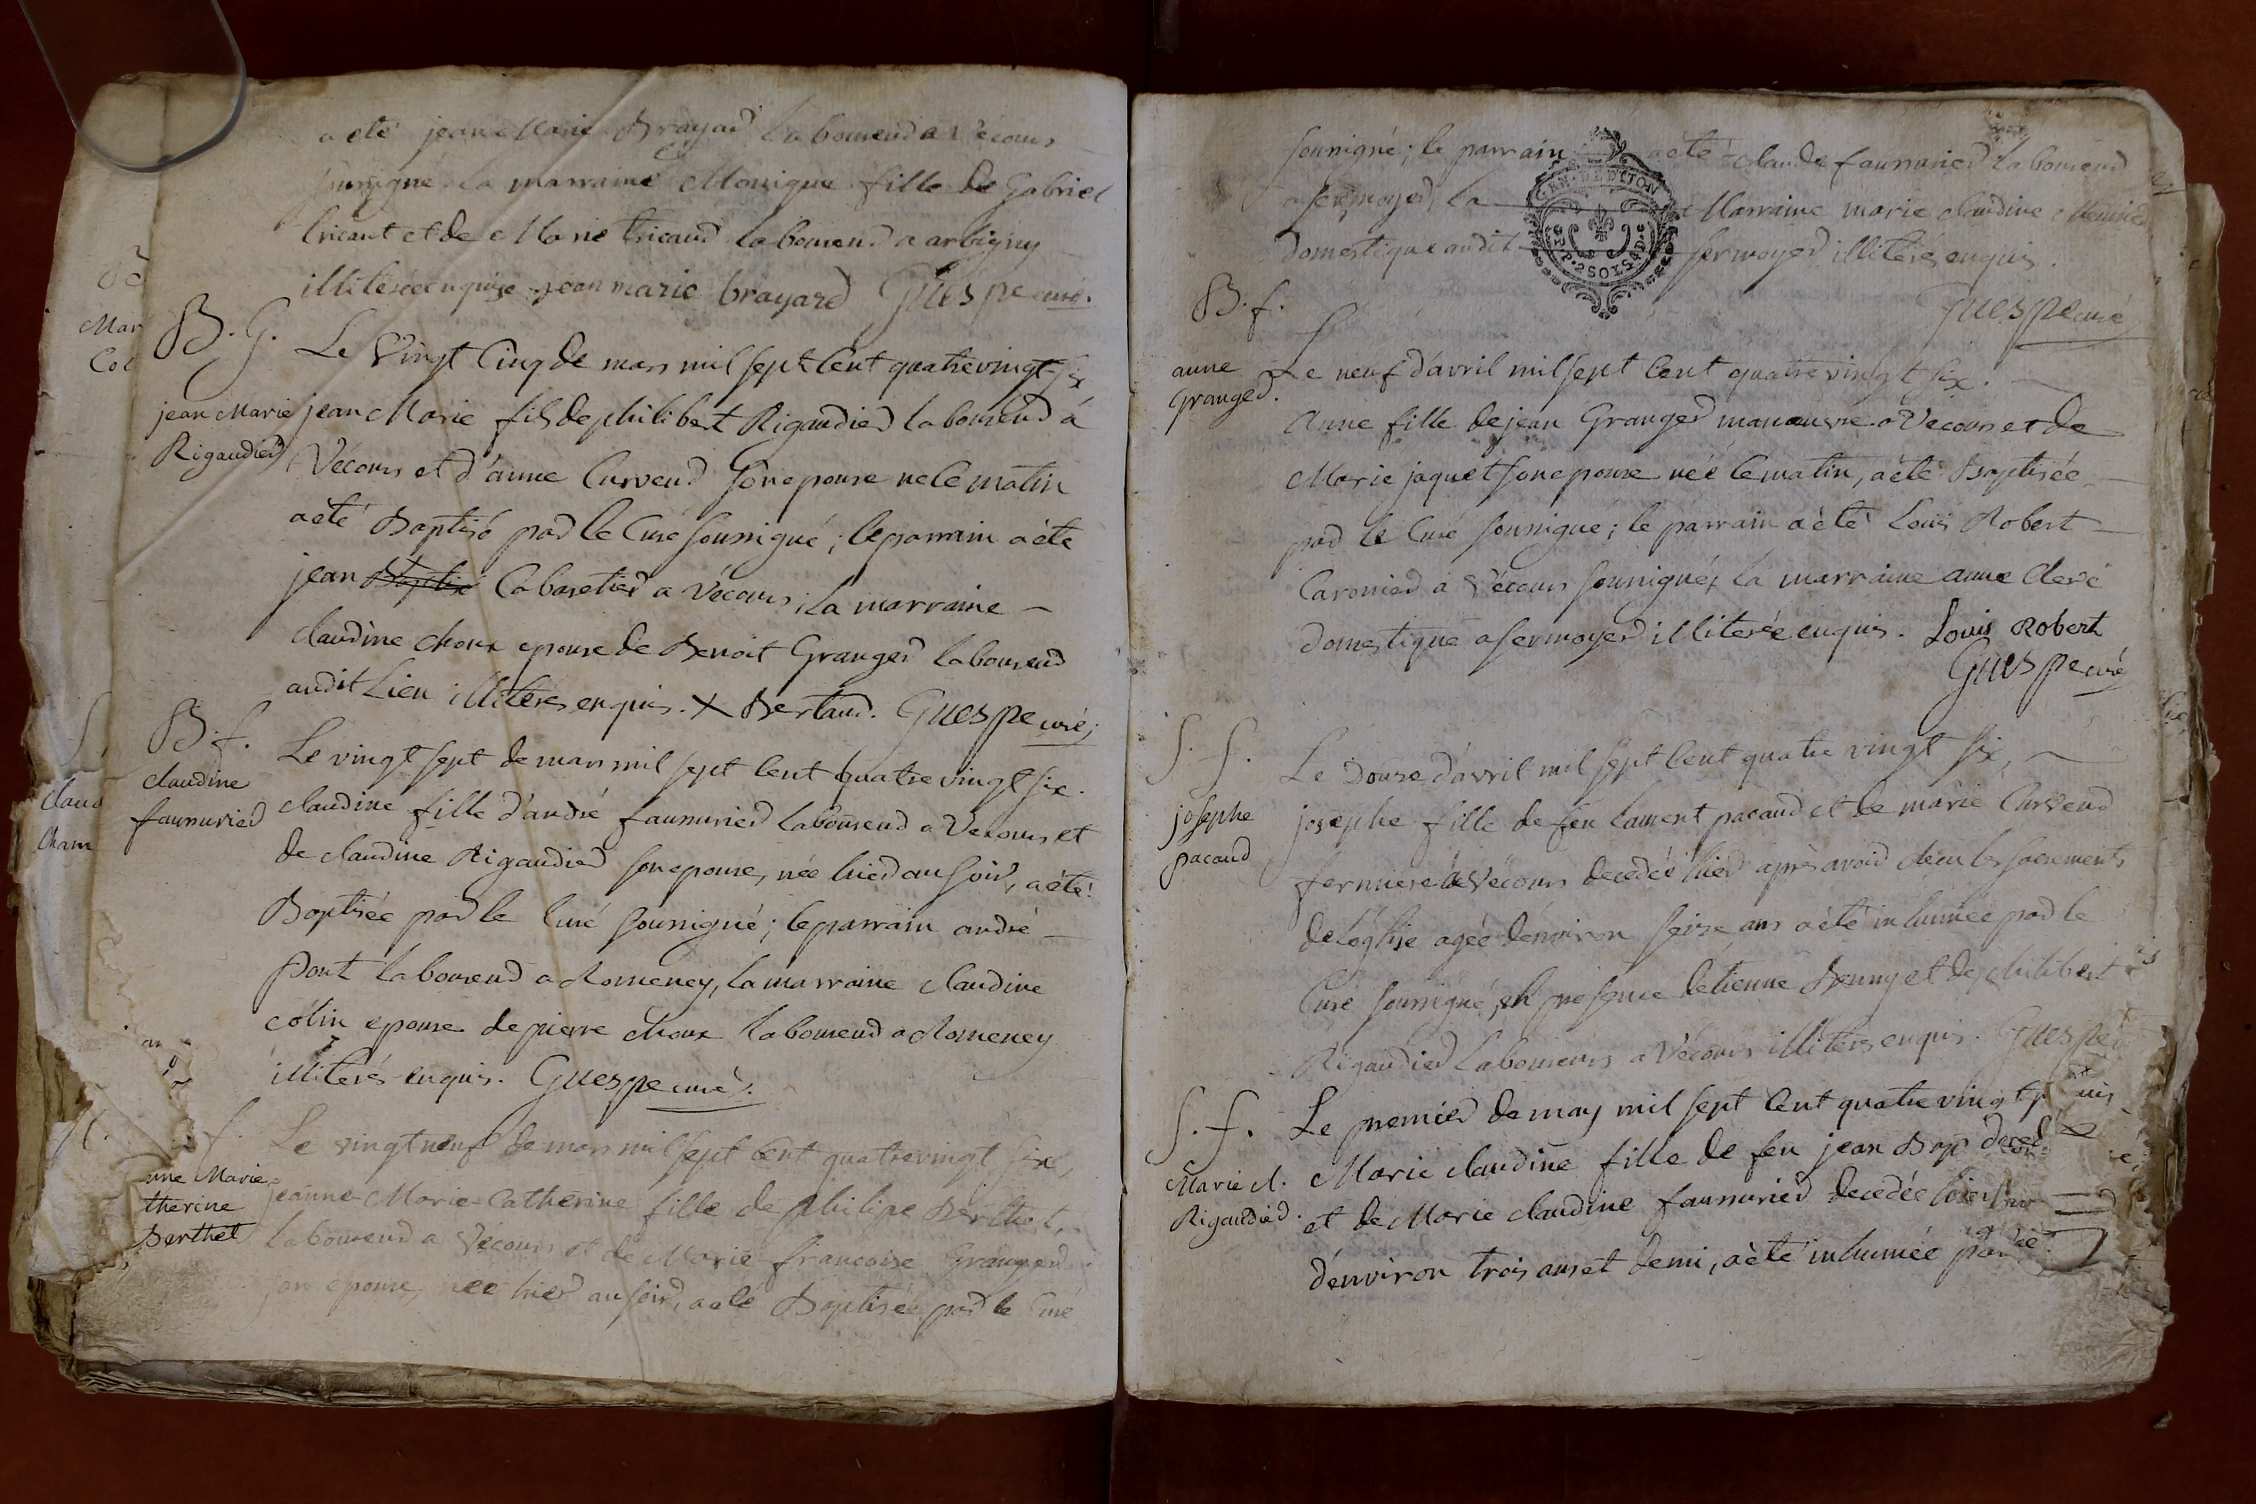 a été jean Marie Brayard laboureur a Vécours
soussigné la marraine Monique fille de Gabriel
tricaut et de Marie tricaud laboureur a arbigny
illiterée enquise jean marie brayard Guespe curé.
B. G.
jean Marie
Rigaudier
Le Vingt Cinq de mars mil sept Cent quatre vingt six
jean Marie fils de philibert Rigaudier laboureur à
Vécours et d'anne Curveur son epouse né le matin
a été Baptisé par le Curé soussigné; le parrain a été
jean Baptise Cabaretier a Vécours, la marraine
claudine choux epouse de Benoit Granger laboureur
audit Lieu illiterés enquis. X Bertaud. Guespe curé
B. f.
claudine
faussurier
Le vingt sept de mars mil sept Cent quatre vingt six.
claudine fille d'andré faussurier laboureur a Vecours et
de claudine Rigaudier son epouse, née hier au soir, a été
Baptisée par le Curé soussigné; le parrain andré
Pont laboureur a Romeney, la marraine claudine
colin epouse de pierre choux laboureur a Romeney
illiterés enquis. Guespe curé.
f.
nne Marie
therine
Berthet
Le vingt neuf de mars mil sept Cent quatre vingt six,
jeanne Marie Catherine fille de philipe Berthet,
laboureur a Vécours et de Marie francoise Granger
son epouse, née hier au soir, a été Baptisée par le Curé
soussigné; le parrain a été claude faussurier laboureur
a sermoyer, la Marraine marie claudine
domestique audit sermoyer illiterés enquis.
Guespe curé
GEN. DE DIJON
2 SOLS
B. f.
anne
Granger.
Le neuf d'avril mil sept Cent quatre vingt six.
Anne fille de jean Granger manœuvre a Vecours et de
Marie jaquet son epouse née le matin, a été Baptisée
par le Curé soussigné; le parrain a été Louis Robert
Caronier a Vécours soussigné, la marraine anne Clere
domestique a sermoyer illiterée enquis. Louis Robert
Guespe curé
S. f.
josephe
pacaud
Le Douze d'avril mil sept Cent quatre vingt six,
josephe fille de feu laurent pacaud et de marie Curveur
fermiere a Vécours decedée hier après avoir recu les sacrements
de l'église agée d'environ seize ans a été inhumée par le
Curé soussigné, en presence d'etienne Benny et de philibert
Rigaudier laboureurs a Vécours illiterés enquis. Guespe
S. f.
Marie cl.
Rigaudier.
Le premier de may mil sept Cent quatre vingt
Marie claudine fille de feu jean Bap
et de Marie claudine faussurier decedée hier
d'environ trois ans et demi, a été inhumée par le